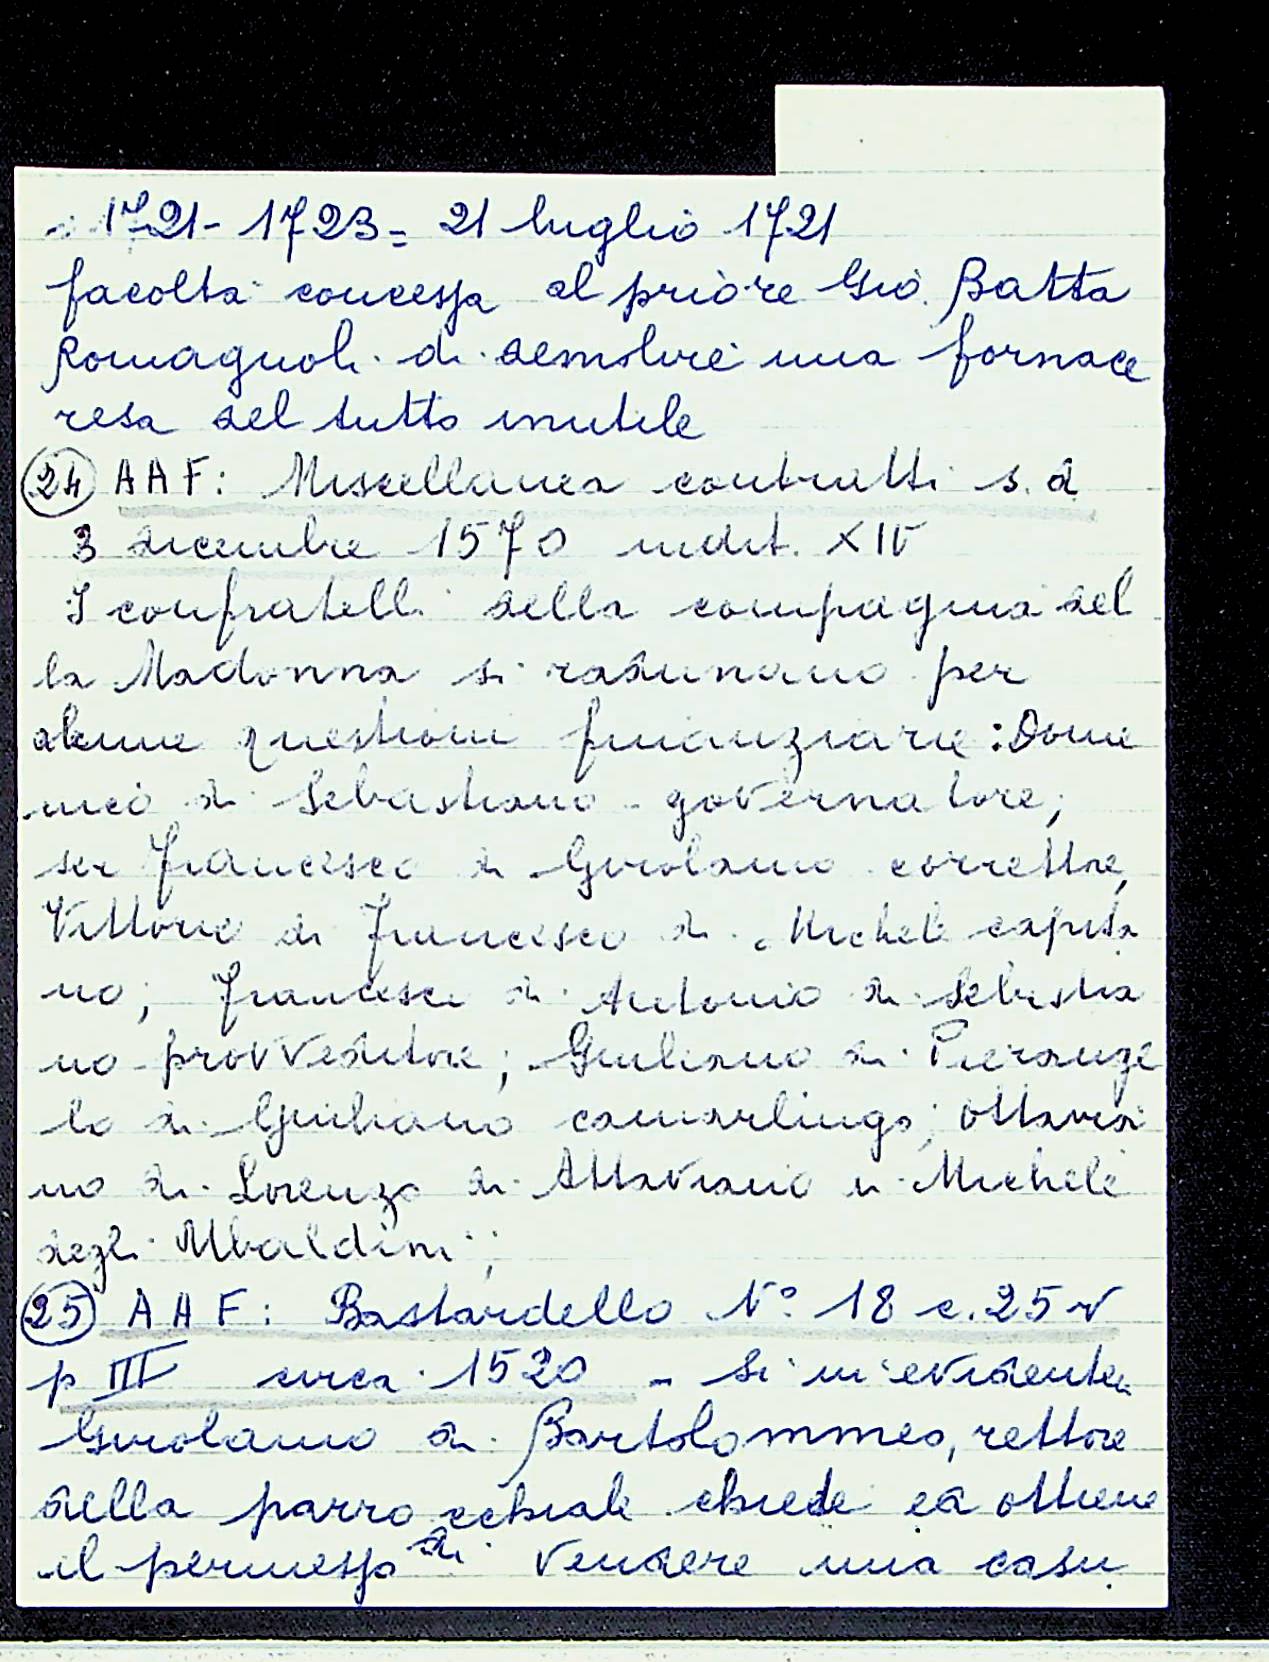 1721-1723= 21 luglio 1721
facoltà concessa al priore Gio. Batta
Romagnoli di demolire una fornace
resa del tutto inutile
24 AAF: Miscellanea contratti s.d
3 dicembre 1570 indit. XIV
I confratelli della compagnia del
la Madonna si radunano per
alcune questioni finanziarie: Dome
nico di Sebastiano governatore;
ser Francesco di Girolamo correttore,
Vittorio di Francesco di Michele capita
no; Francesco di Antonio di Sebastia
no provveditore; Giuliano di Pierange
lo di Giuliano camarlingo; Ottavia
no di Lorenzo di Attaviano di Michele
degli Ubaldini;
25 AAF: Bastardello N° 18 c. 25 v
p III circa 1520 - Si in evidente
Girolamo di Bartolommeo, rettore
della parrocchiale chiede ed ottiene
il permesso di vendere una casa